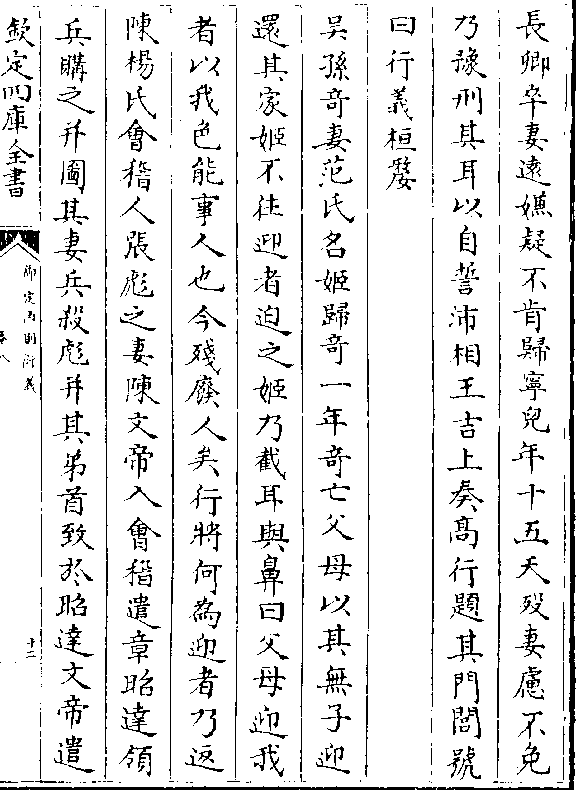 長卿卒妻遠嫌疑不肯歸寧兒年十五夭歿妻慮不免
乃豫刑其耳以自誓沛相王吉上奏高行題其門閭號
曰行義桓嫠
吴孫竒妻范氏名姬歸竒一年竒亡父母以其無子迎
還其家姬不往迎者迫之姬乃截耳與鼻曰父母迎我
者以我色能事人也今殘廢人矣行將何為迎者乃返
陳楊氏會稽人張彪之妻陳文帝入會稽遣章昭達領
兵購之并圖其妻兵殺彪并其弟首致於昭達文帝遣
欽定四庫全書
御定内則衍義
卷八
十二